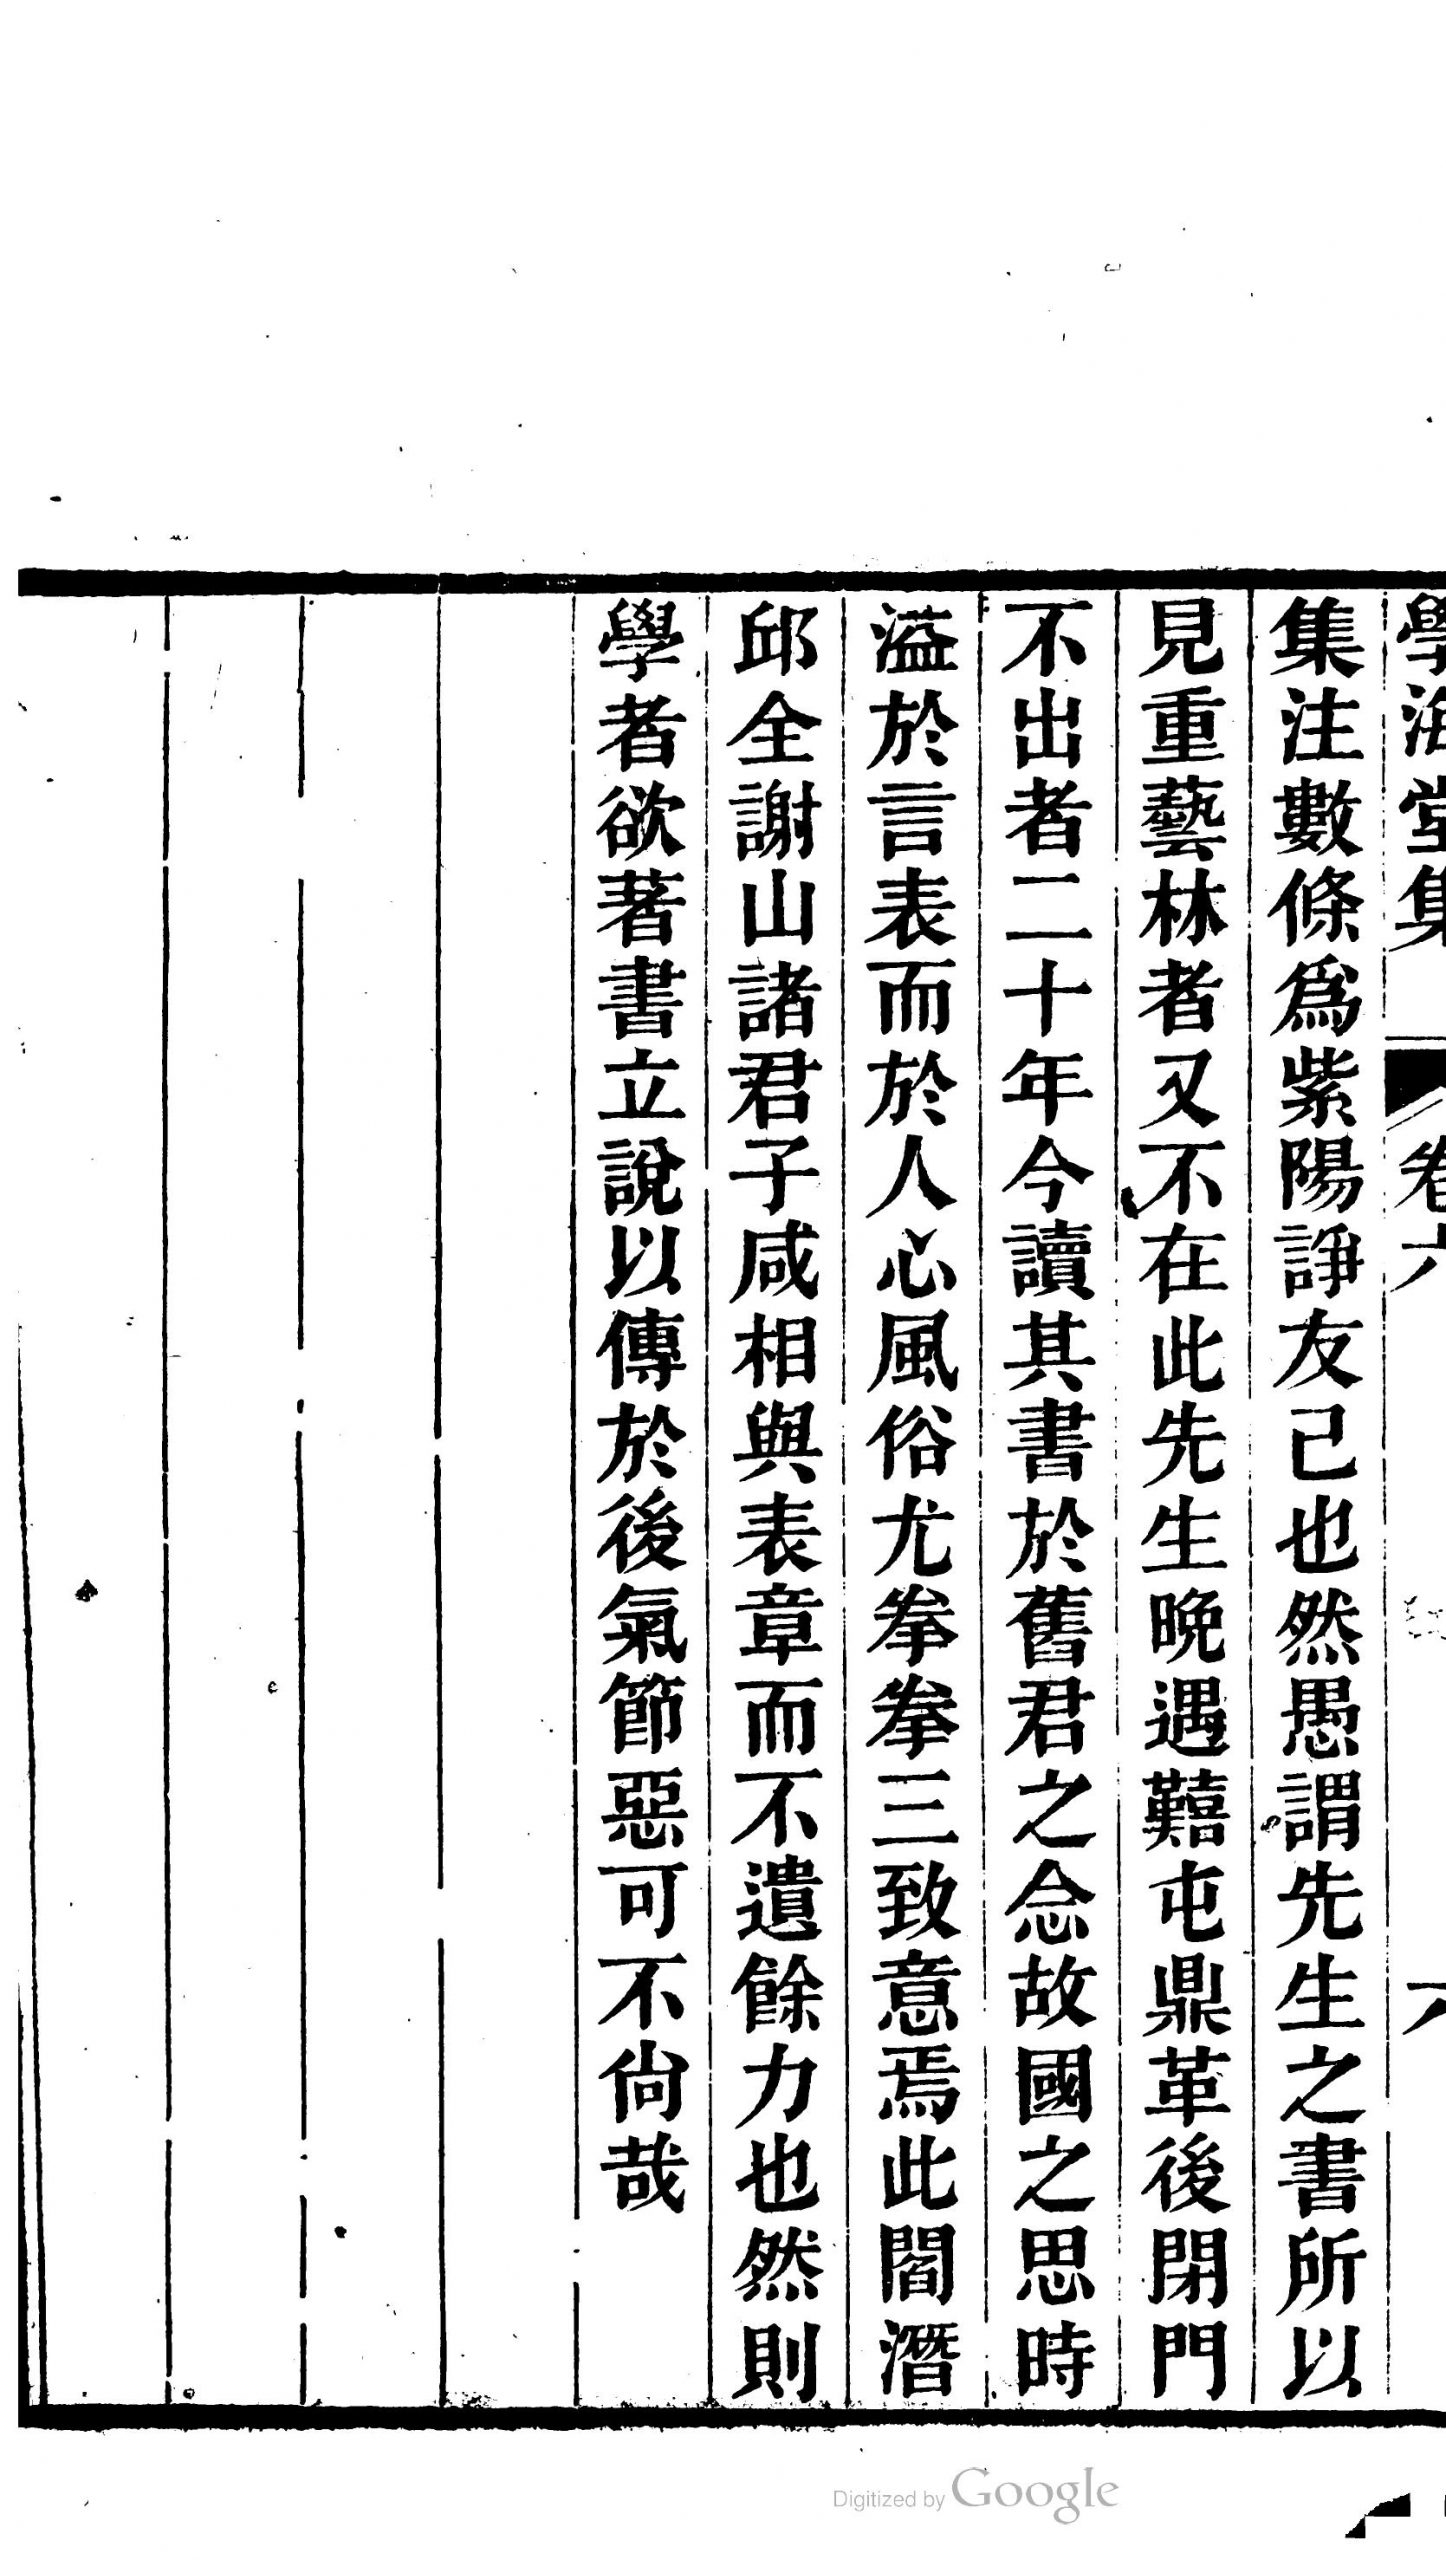 學海堂集 卷六 六
集注數條爲紫陽諍友已也然愚謂先生之書所以
見重藝林者又不在此先生晚遇囏屯鼎革後閉門
不出者二十年今讀其書於舊君之念故國之思時
溢於言表而於人心風俗尤拳拳三致意焉此閻潛
邱全謝山諸君子咸相與表章而不遺餘力也然則
學者欲著書立說以傳於後氣節惡可不尙哉
Digitized by Google